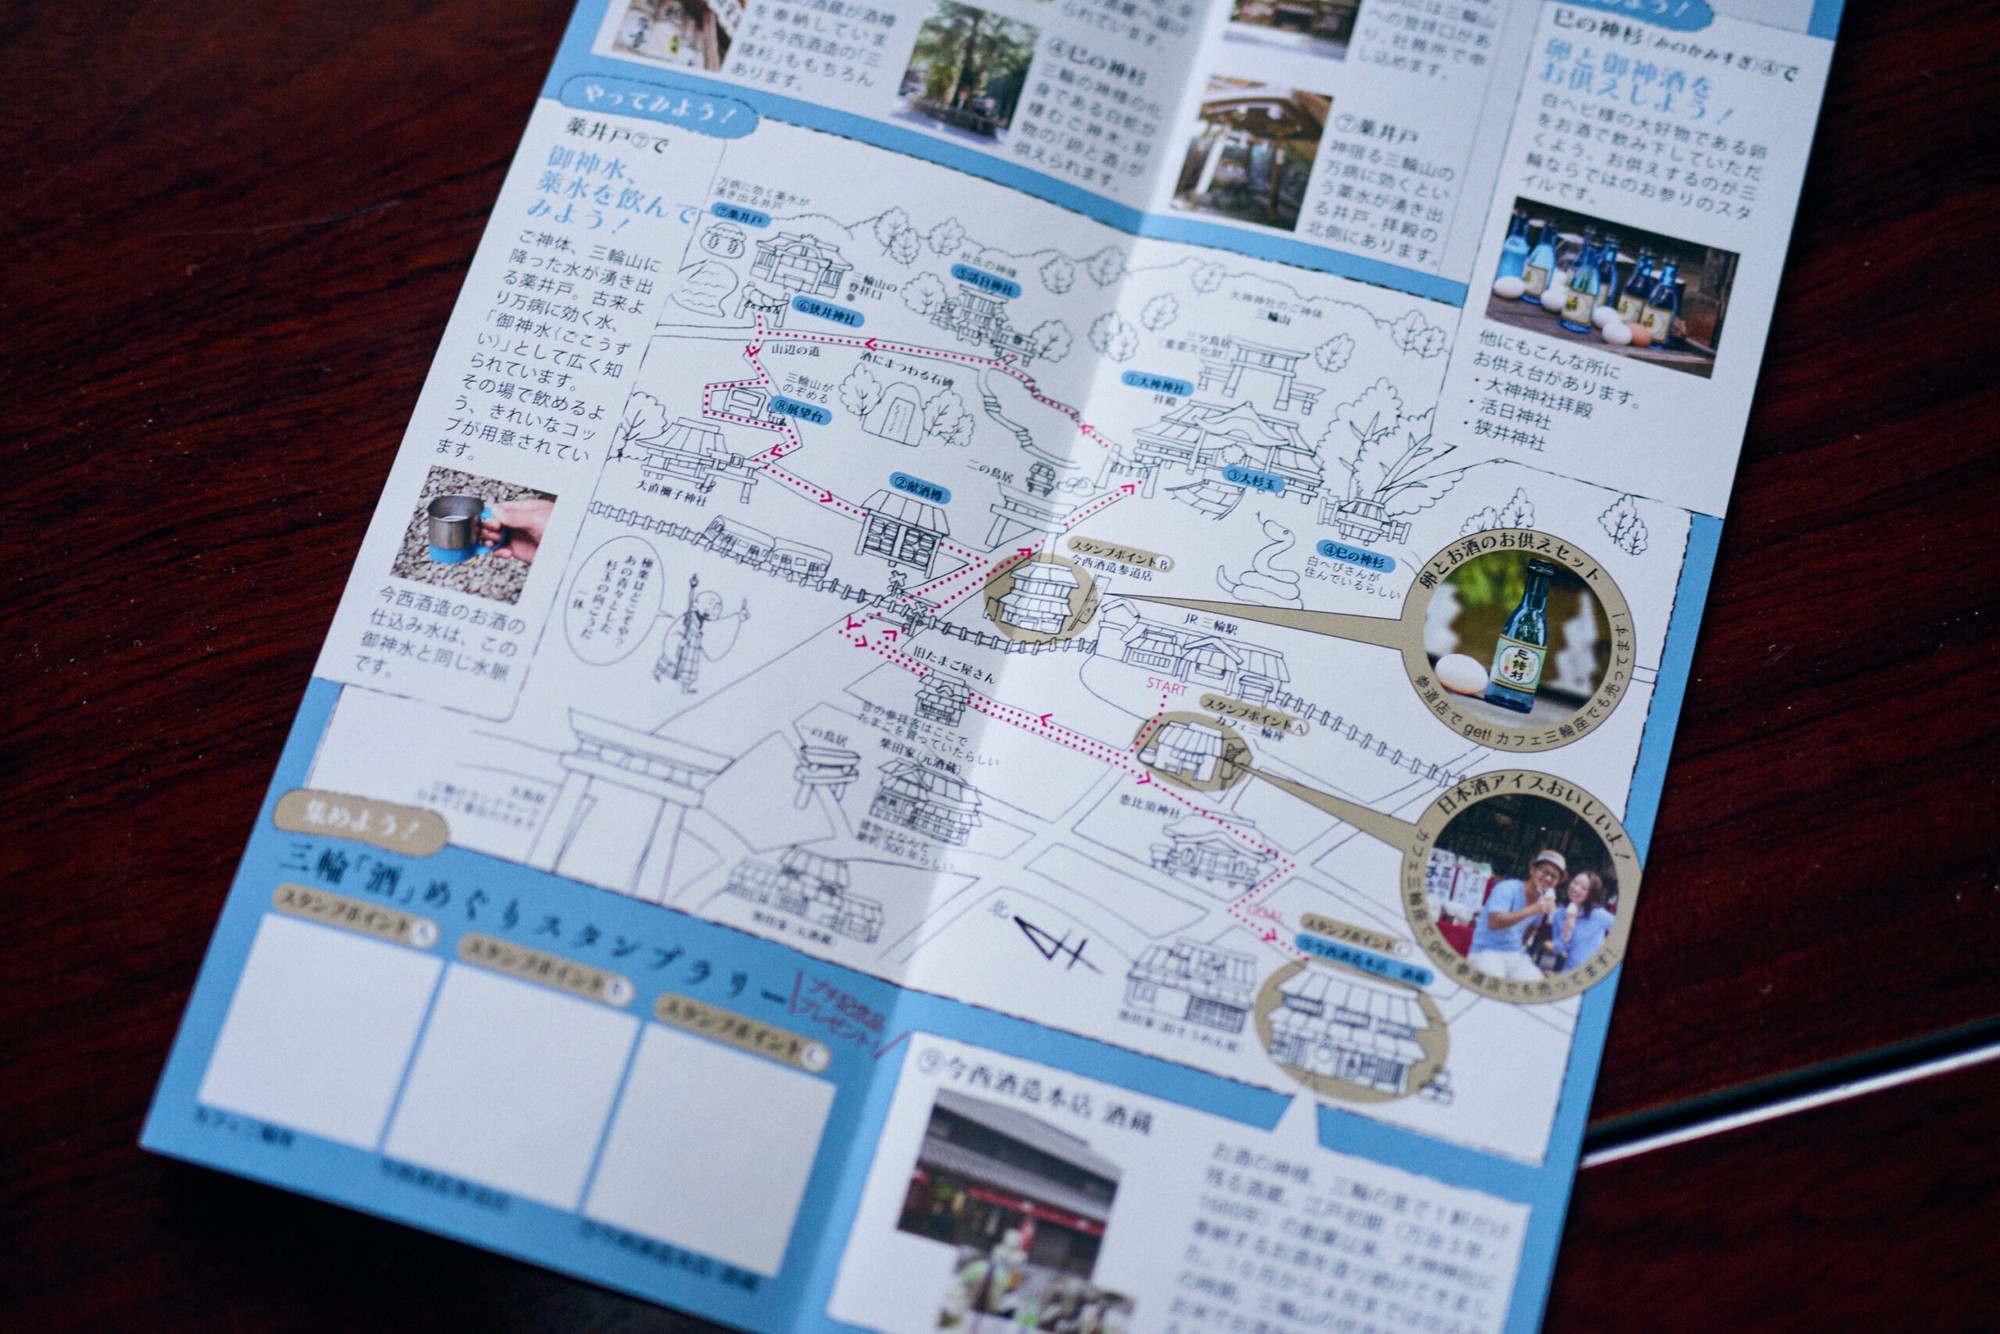 の酒蔵が酒樽
を奉納していま
す。今西酒造の「三
諸杉」ももちろん
あります。
られています。
④巳の神杉
三輪の神様の化
身である白蛇が
棲むご神木。好
物の「卵と酒」が
供えられます。
内には三輪山
への登拝口があ
り、社務所で申
し込めます。
⑦薬井戸
神宿る三輪山の
万病に効くとい
う薬水が湧き出
る井戸。拝殿の
北側にあります。
巳の神杉(みのかみすぎ)④で
卵と御神酒を
お供えしよう!
白ヘビ様の大好物である卵
をお酒で飲み下していただ
くよう、お供えするのが三
輪ならではのお参りのスタ
イルです。
他にもこんな所に
お供え台があります。
・大神神社拝殿
・活日神社
・狭井神社
やってみよう!
薬井戸⑦で
御神水、
薬水を飲んで
みよう!
ご神体、三輪山に
降った水が湧き出
る薬井戸。古来よ
り万病に効く水、
「御神水(ごこうず
い)」として広く知
られています。
その場で飲めるよ
う、きれいなコッ
プが用意されてい
ます。
今西酒造のお酒の
仕込み水は、この
御神水と同じ水脈
です。
万病に効く薬水が
湧き出る井戸
⑦薬井戸
三輪山の
登拝口
⑥狭井神社
杜氏の神様
⑤活日神社
山辺の道
酒にまつわる石碑
三輪山が
のぞめる
⑧展望台
大直禰子神社
②献酒樽
二の鳥居
大神神社のご神体
三輪山
三ツ鳥居
(重要文化財)
①大神神社
拝殿
③大杉玉
④巳の神杉
白へびさんが
住んでいるらしい
スタンプポイントB
今西酒造参道店
極楽はどこぞやで?
あの青々とした
杉玉の向こうだ。
一休
JR 三輪駅
START
旧たまご屋さん
昔の参拝客はここで
たまごを買っていたらしい
スタンプポイントA
カフェ三輪座
の鳥居
柴田家(元酒蔵)
建物はなんと
築約300年らしい
恵比須神社
GOAL
北
スタンプポイントC
⑨今西酒造本店 酒蔵
卵とお酒のお供えセット
参道店でget! カフェ三輪座でも売ってます!
日本酒アイスおいしいよ!
カフェ三輪座でget! 参道店でも売ってます!
集めよう!
三輪「酒」めぐりスタンプラリー
プチ記念品
プレゼント!
スタンプポイントA
スタンプポイントB
スタンプポイントC
カフェ三輪座
今西酒造参道店
⑨今西酒造本店 酒蔵
お酒の神様、三輪の里で1軒だけ
残る酒蔵。江戸初期(万治3年・
1660年)の創業以来、大神神社に
奉納するお酒を造り続けてきまし